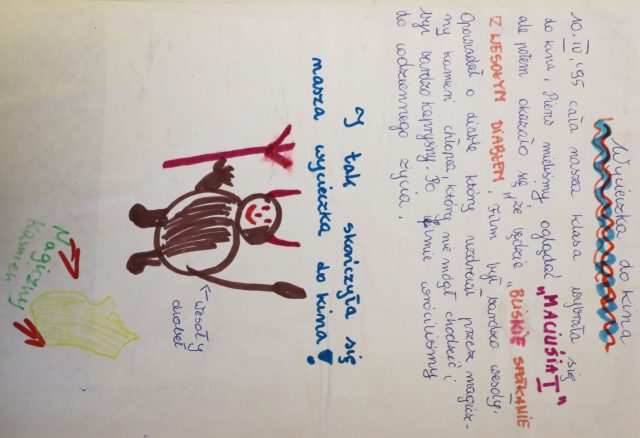 Wycieczka do kina
10.IV.'95 cała nasza klasa wybrała się
do kina. Pierw mieliśmy oglądać "MACIUSIA I"
ale potem okazało się, że będzie "BLISKIE SPOTKANIE
Z WESOŁYM DIABŁEM". Film był bardzo wesoły.
Opowiadał o diable który uzdrowiał przez magicz-
ny kamień chłopca, który nie mógł chodzić i
był bardzo kapryśny. Po filmie wróciliśmy
do codziennego życia.
I tak skończyła się
nasza wycieczka do kina!
← wesoły
diabeł
Magiczny
kamień